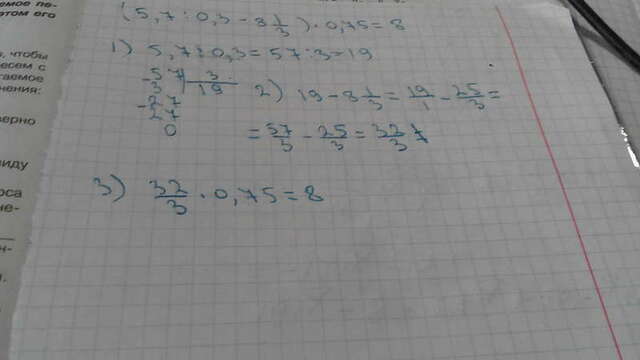 емое пе-
этом его
, чтобы
есем с
гаемое
нения:
верно
виду
оса
не-
н-
(5,7 : 0,3 - 8 1/3) · 0,75 = 8
1) 5,7 : 0,3 = 57 : 3 = 19
-57 | 3
3 | 19
-27
27
0
2) 19 - 8 1/3 = 19/1 - 25/3 =
= 57/3 - 25/3 = 32/3
3) 32/3 · 0,75 = 8